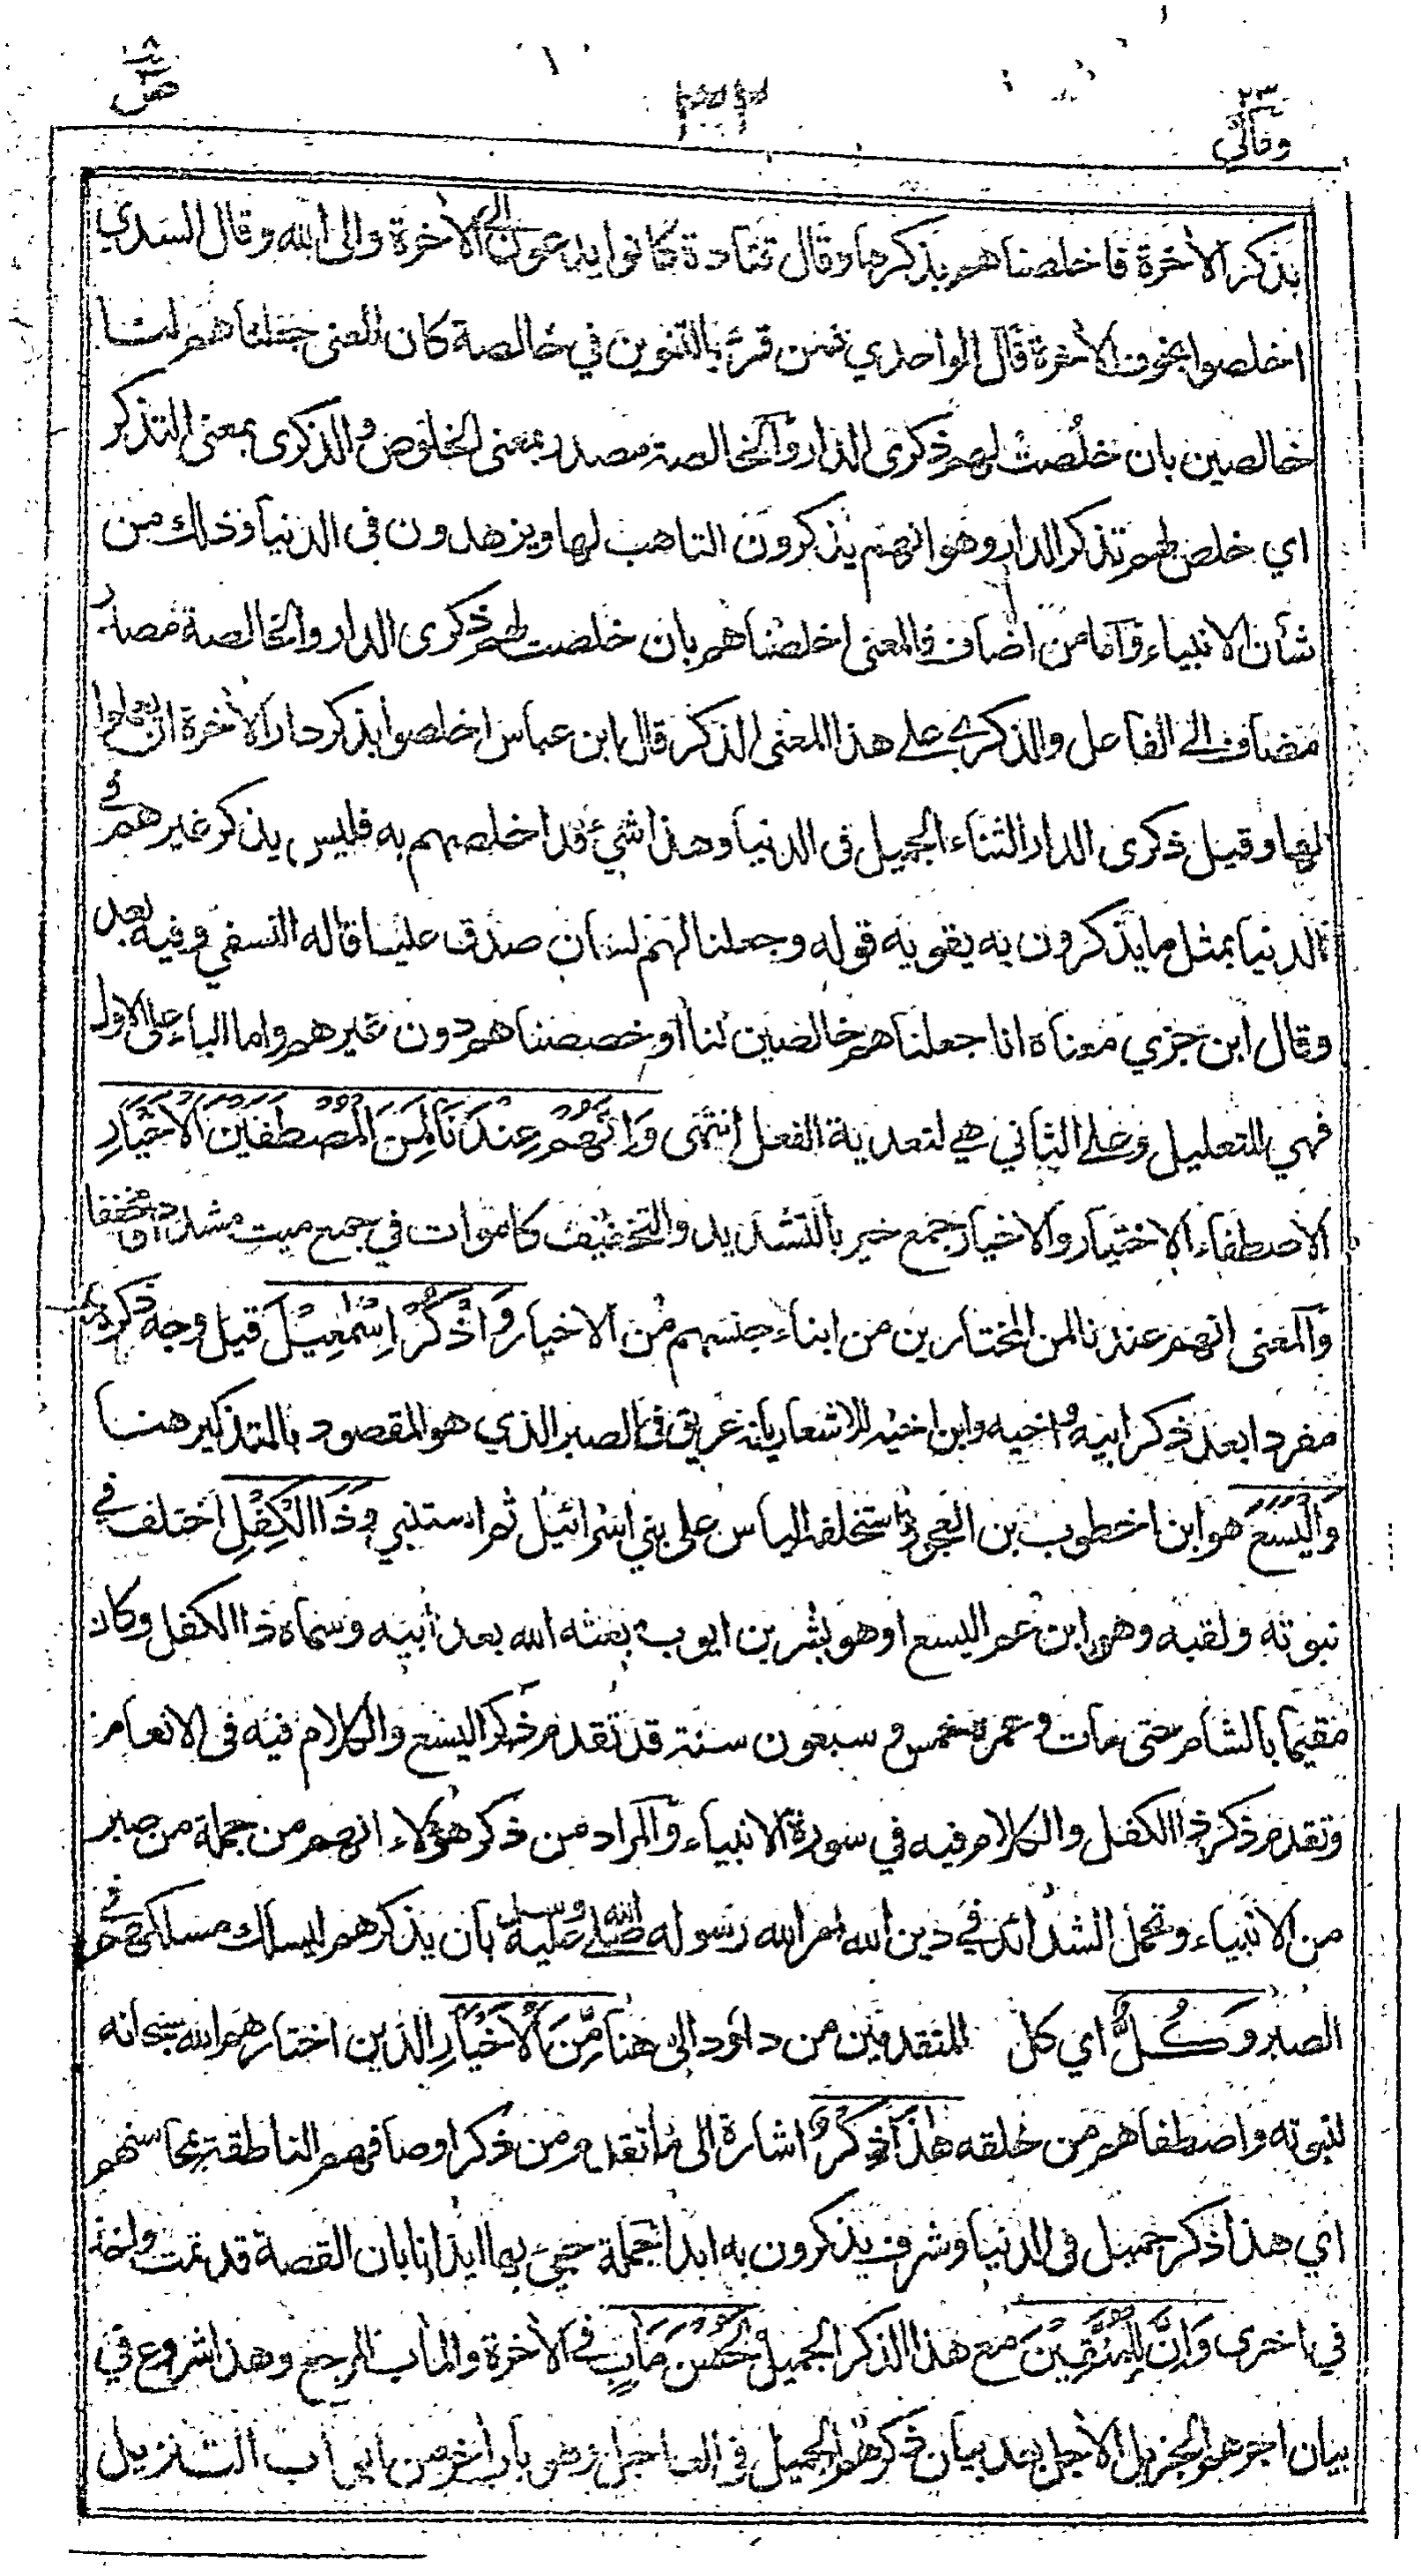 ومالي ٢٣
ص ٣٨
بذكر الأخرة فاخلصناهم بذكرها وقال قتادة كانوا يدعون الى الأخرة والى الله وقال السدي
اخلصوا بخوف الأخرة قال الواحدي فمن قرء بالتنوين في خالصة كان المعنى جعلناهم لنا
خالصين بان خلصت لهم ذكرى الدار والخالصة مصدر بمعنى الخلوص والذكرى بمعنى التذكر
اي خلص لهم تذكر الدار وهو انهم يذكرون التاهب لها ويزهدون فى الدنيا وذلك من
شأن الانبياء وآما من اضاف فالمعنى اخلصناهم بان خلصت لهم ذكرى الدار والخالصة مصدر
مضاف الى الفاعل والذكرى على هذا المعنى الذكر قال ابن عباس اخلصوا بذكر دار الأخرة ان يعملوا
لها وقيل ذكرى الدار الثناء الجميل فى الدنيا وهذا شيء قد اخلصهم به فليس يذكر غيرهم في
الدنيا بمثل ما يذكرون به يقويه قوله وجعلنا لهم لسان صدق عليا قاله النسفي وفيه بعد
وقال ابن جزي معناه انا جعلناهم خالصين لنا او خصصناهم دون غيرهم واما الباء على الاول
فهي للتعليل وعلى الثاني هي لتعدية الفعل انتهى وَاِنَّهُمْ عِنْدَنَا لَمِنَ الْمُصْطَفَيْنَ الْاَخْيَارِ
الاصطفاء الاختيار والاخيار جمع خير بالتشديد والتخفيف كاموات في جمع ميت مشددا او مخففا
والمعنى انهم عندنا لمن المختارين من ابناء جنسهم من الاخيار وَاذْكُرْ اِسْمٰعِيْلَ قيل وجه ذكره
مفردا بعد ذكر ابيه واخيه وابن اخيه للاشعار بانه عريق فى الصبر الذي هو المقصود بالتذكير هنا
وَالْيَسَعَ هو ابن اخطوب بن العجوز استخلفه الياس على بني اسرائيل ثم استنبي وَذَا الْكِفْلِ اختلف في
نبوته ولقبه وهو ابن عم اليسع او هو بشر بن ايوب بعثه الله بعد أبيه وسماه ذا الكفل وكان
مقيما بالشام حتى مات وعمره خمس وسبعون سنة قد تقدم ذكر اليسع والكلام فيه فى الانعام
وتقدم ذكر ذا الكفل والكلام فيه في سورة الانبياء والمراد من ذكر هؤلاء انهم من جملة من صبر
من الانبياء وتحمل الشدائد في دين الله امر الله رسوله صلى الله عليه وسلم بان يذكرهم ليسلك مسلكهم في
الصبر وَكُلٌّ اي كل المتقدمين من داود الى هنا مِّنَ الْاَخْيَارِ الذين اختارهم الله سبحانه
لنبوته واصطفاهم من خلقه هٰذَا ذِكْرٌ اشارة الى ما تقدم من ذكر اوصافهم الناطقة بمحاسنهم
اي هذا ذكر جميل فى الدنيا وشرف يذكرون به ابدا جملة جيء بها ايذانا بان القصة قد تمت واخذ
في اخرى وَاِنَّ لِلْمُتَّقِيْنَ مع هذا الذكر الجميل لَحُسْنَ مَاٰبٍ في الأخرة والمأب المرجع وهذا شروع في
بيان اجرهم الجزيل الأجل بعد بيان ذكرهم الجميل فى العاجل وهو باب أخر من ابواب التنزيل